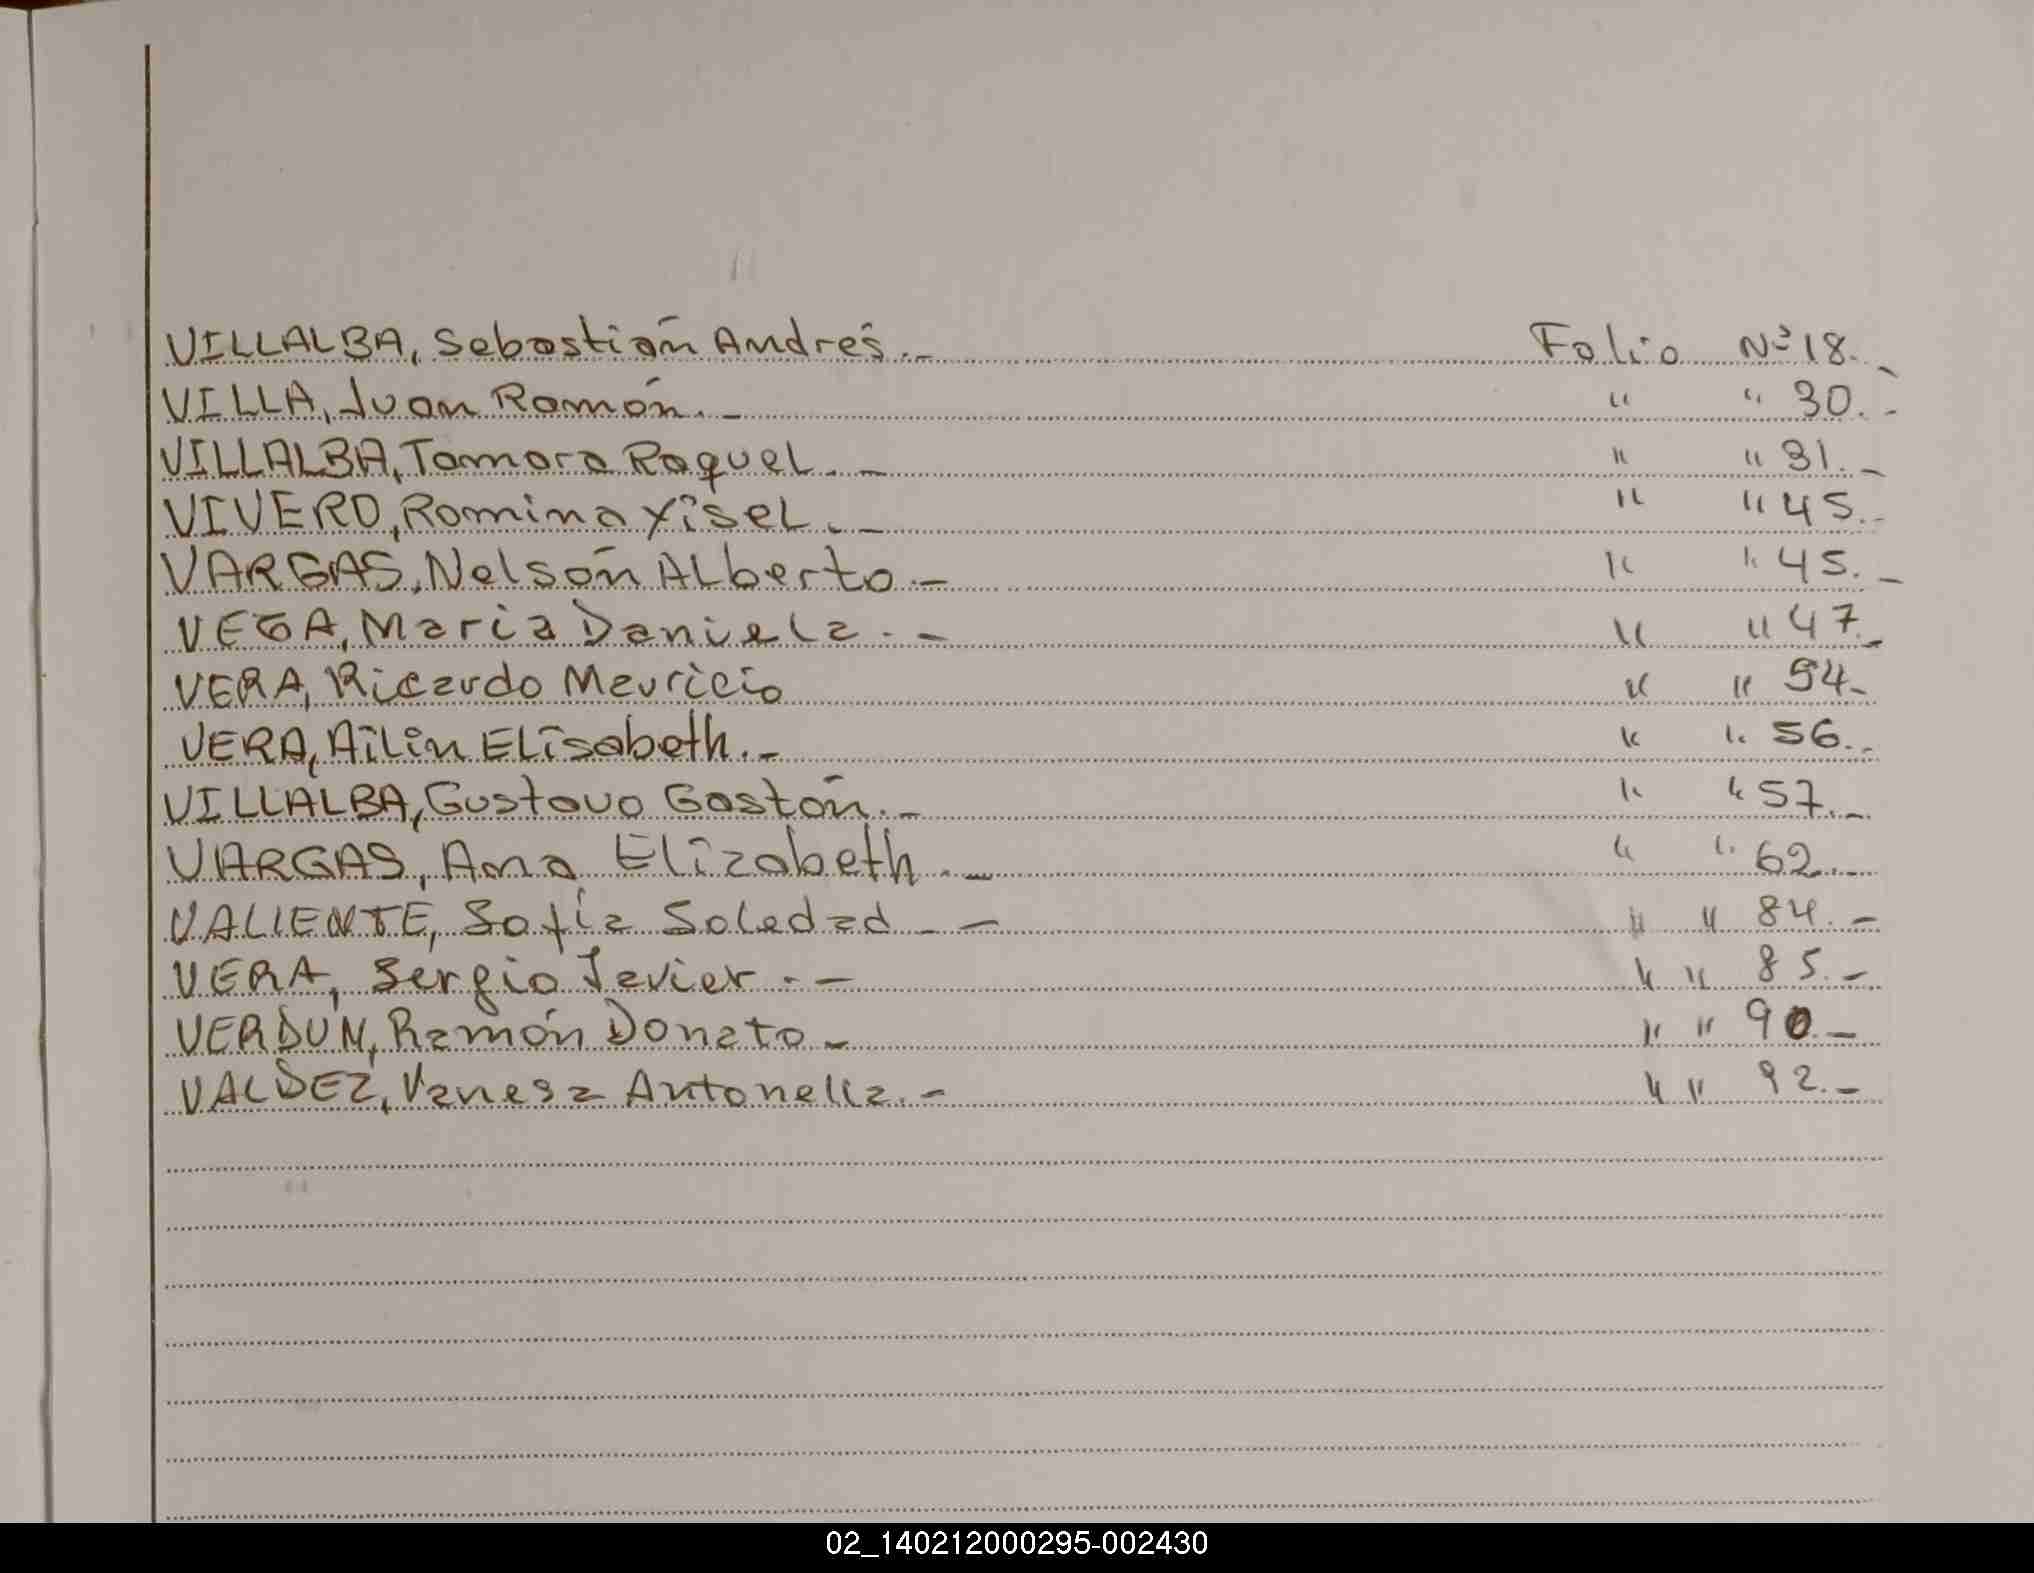 VILLALBA, Sebastián Andrés.- Folio Nº 18.-
VILLA, Juan Ramón.- " " 30.-
VILLALBA, Tamara Raquel.- " " 31.-
VIVERO, Romina Yisel.- " " 45.-
VARGAS, Nelsón Alberto.- " " 45.-
VEGA, Maria Daniela.- " " 47.-
VERA, Ricardo Mauricio " " 54-
VERA, Ailin Elisabeth.- " " 56.-
VILLALBA, Gustavo Gastón.- " " 57.-
VARGAS, Ana Elizabeth.- " " 62.-
VALIENTE, Sofia Soledad.- " " 84.-
VERA, Sergio Javier.- " " 85.-
VERDÚN, Ramón Donato- " " 90.-
VALDEZ, Vanesa Antonella.- " " 92.-
02_140212000295-002430